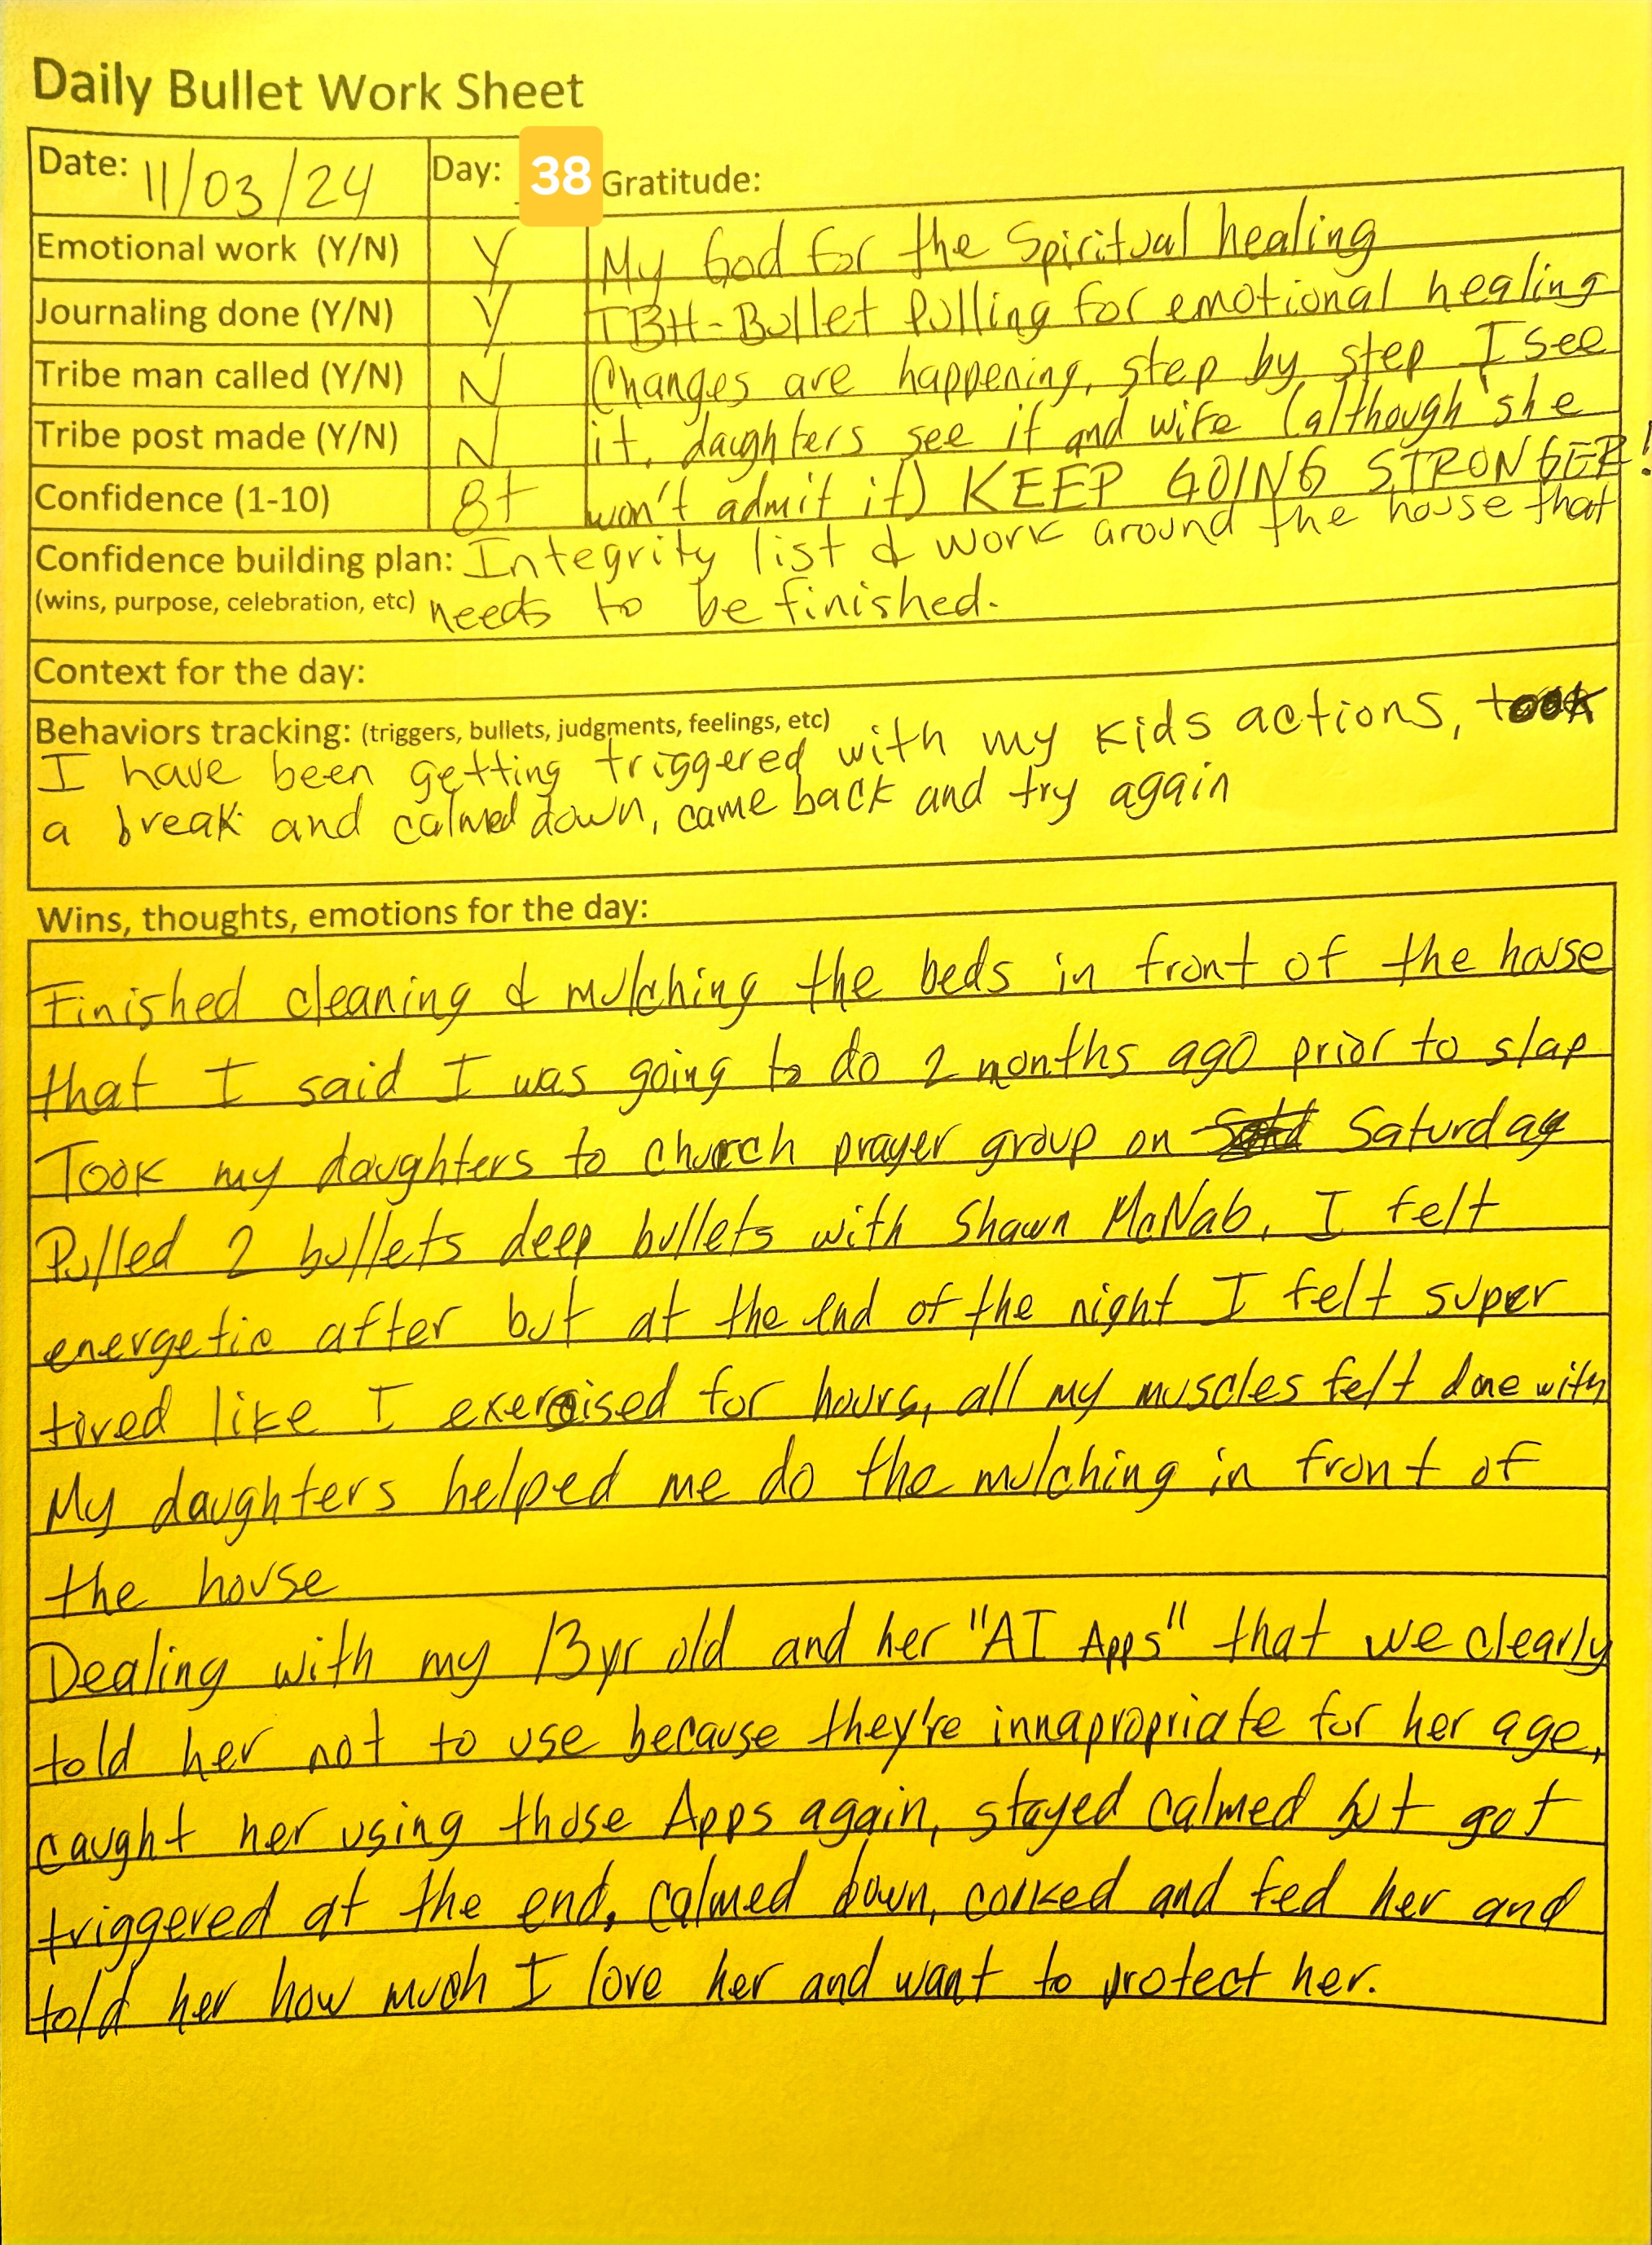 Daily Bullet Work Sheet
Date: 11/03/24 Day: 38 Gratitude:
Emotional work (Y/N) Y My God for the Spiritual healing
Journaling done (Y/N) Y TBH-Bullet Pulling for emotional healing
Tribe man called (Y/N) N Changes are happening, step by step I see
Tribe post made (Y/N) N it, daughters see it and wife (although she
Confidence (1-10) 8+ won't admit it) KEEP GOING STRONGER!
Confidence building plan: Integrity list & work around the house that
(wins, purpose, celebration, etc) needs to be finished.
Context for the day:
Behaviors tracking: (triggers, bullets, judgments, feelings, etc)
I have been getting triggered with my kids actions, took
a break and calmed down, came back and try again
Wins, thoughts, emotions for the day:
Finished cleaning & mulching the beds in front of the house
that I said I was going to do 2 months ago prior to slap
Took my daughters to church prayer group on Saturday
Pulled 2 bullets deep bullets with Shawn McNab, I felt
energetic after but at the end of the night I felt super
tired like I exercised for hours, all my muscles felt done with
My daughters helped me do the mulching in front of
the house
Dealing with my 13yr old and her "AI Apps" that we clearly
told her not to use because they're innapropriate for her age,
caught her using those Apps again, stayed calmed but got
triggered at the end, calmed down, cooked and fed her and
told her how much I love her and want to protect her.